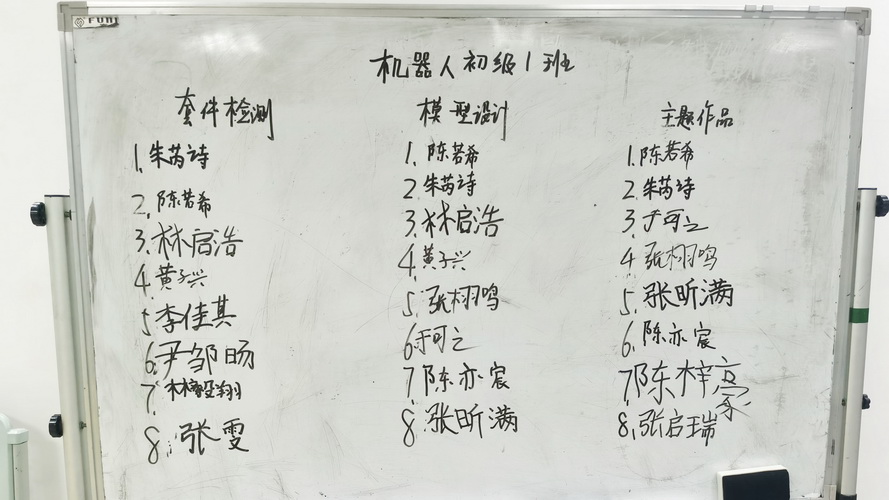 机器人初级1班
套件检测
1.朱芮诗
2.陈若希
3.林启浩
4.黄子兴
5.李佳其
6.尹邹旸
7.林毅翔
8.张雯
模型设计
1.陈若希
2.朱芮诗
3.林启浩
4.黄子兴
5.张栩鸣
6.于可之
7.陈亦宸
8.张昕满
主题作品
1.陈若希
2.朱芮诗
3.于可之
4.张栩鸣
5.张昕满
6.陈亦宸
7.陈梓豪
8.张启瑞